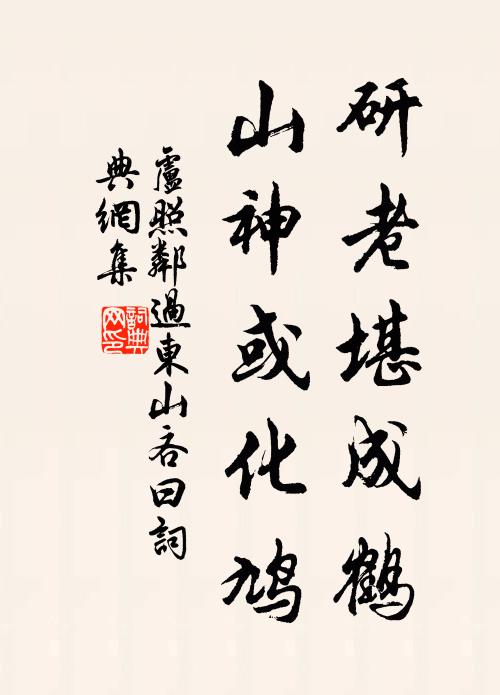 研老堪成鶴
山神或化鳩
盧照鄰過東山吝曰詞
典網集
詞典
网印